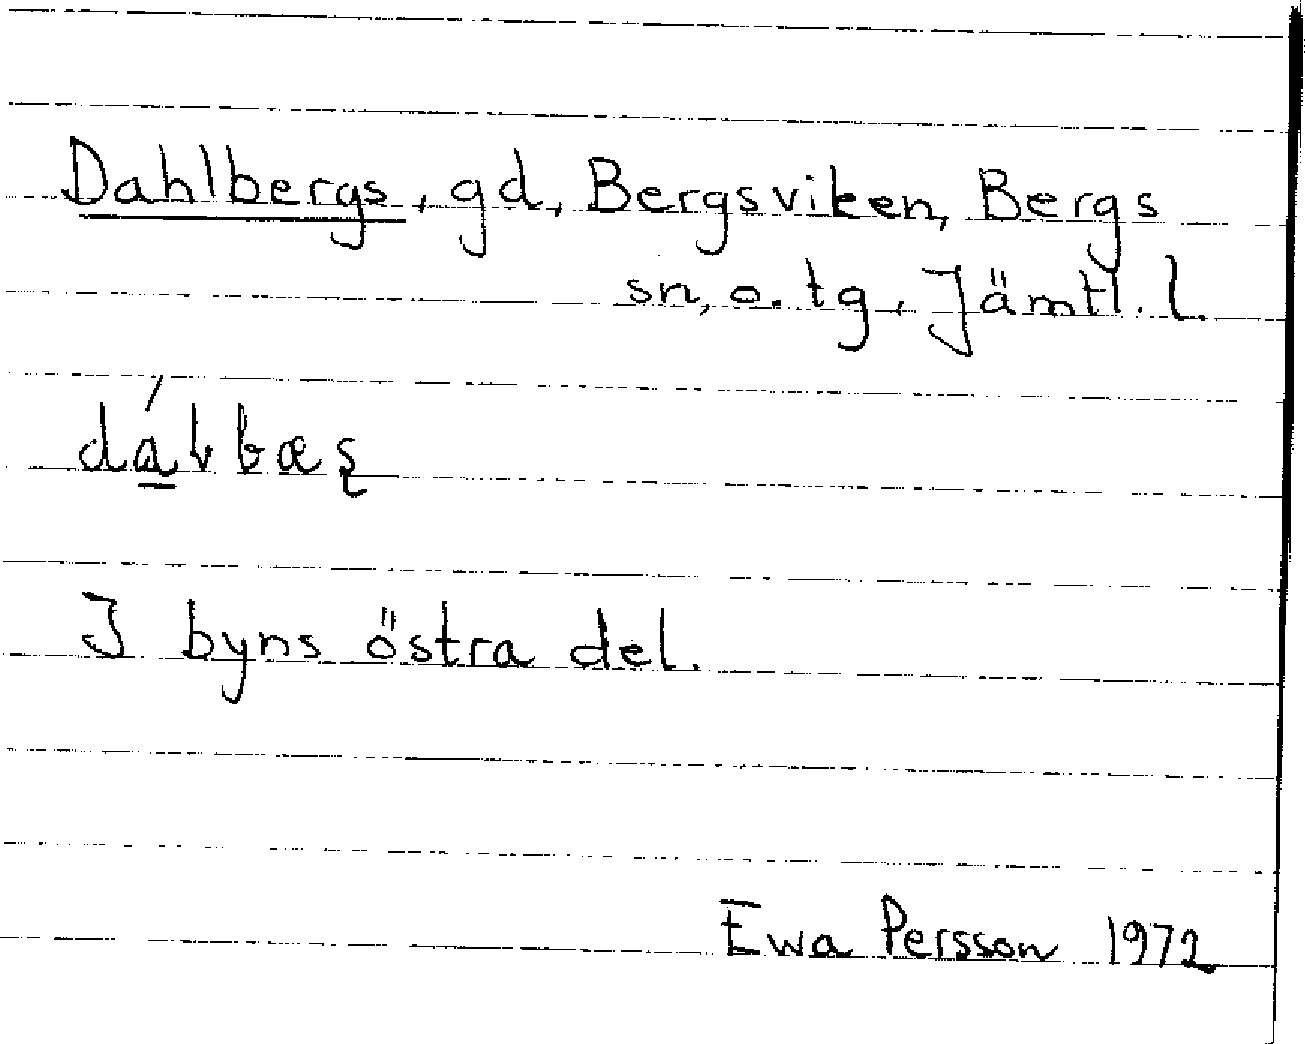 Dahlbergs, gd, Bergsviken, Bergs
sn, o. tg, Jämtl. l.
I byns östra del.
Ewa Persson 1972